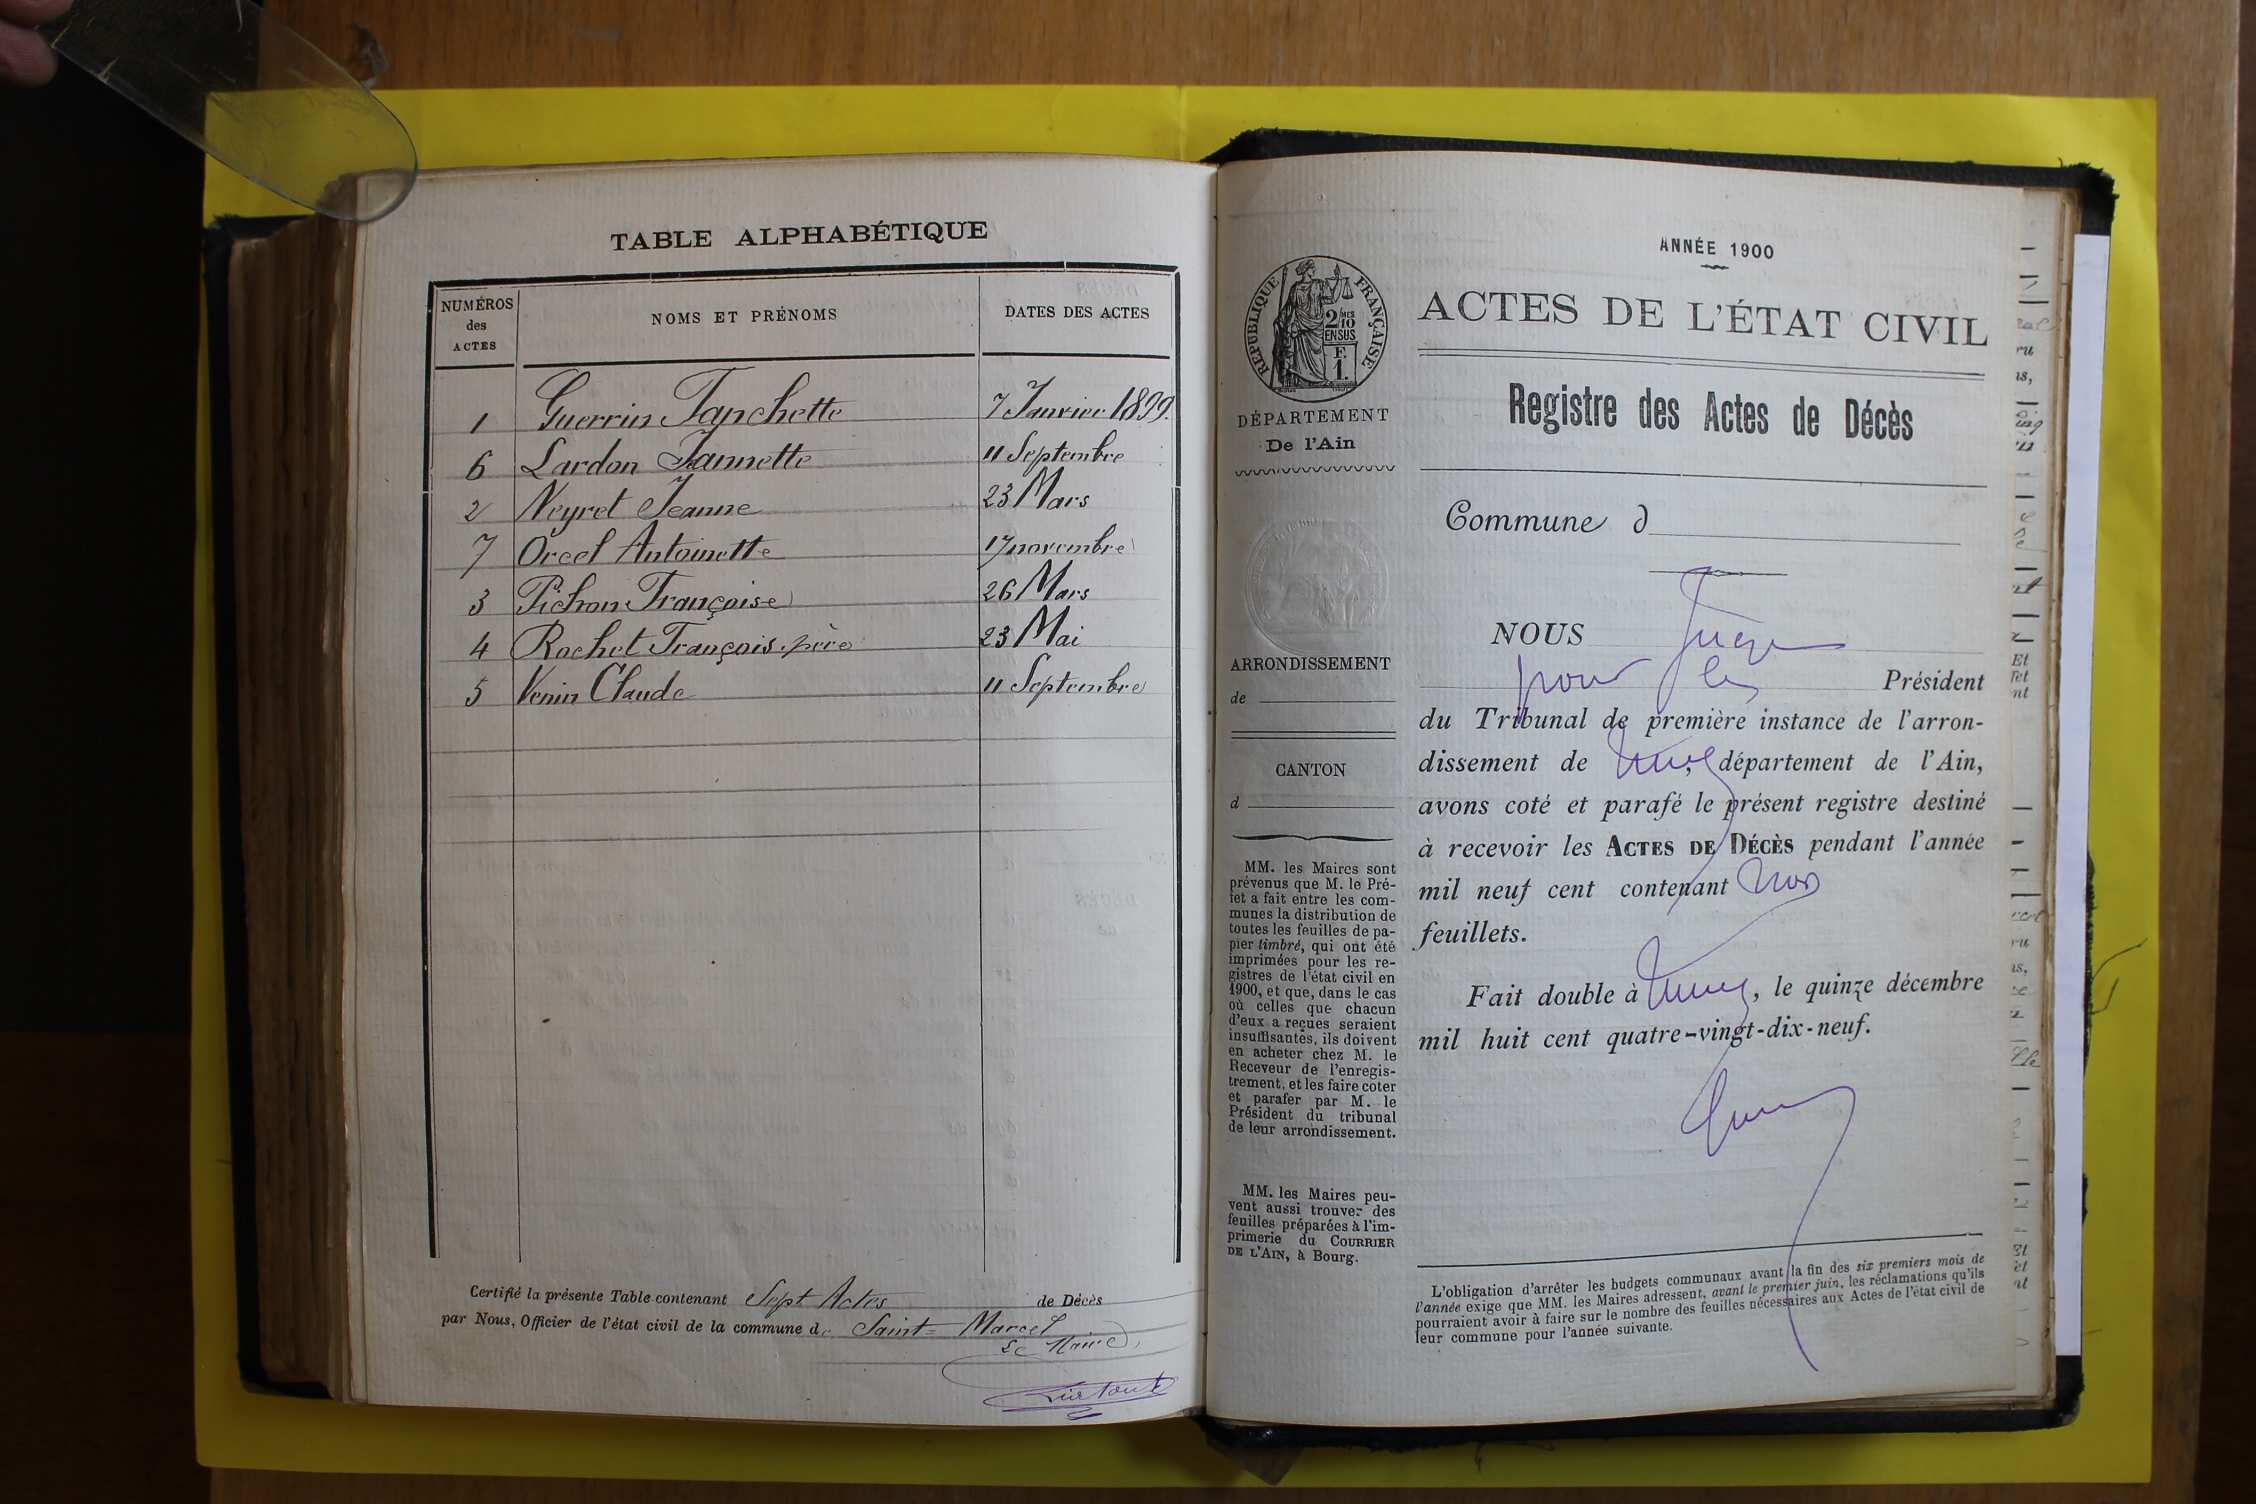 TABLE ALPHABÉTIQUE
NUMÉROS
des
ACTES
NOMS ET PRÉNOMS
DATES DES ACTES
1 Guerrin Fanchette 7 Janvier 1899.
6 Lardon Jannette 11 Septembre
2 Neyret Jeanne 23 Mars
7 Orcel Antoinette 17 novembre
3 Pichon Françoise 26 Mars
4 Rochet François père 23 Mai
5 Venin Claude 11 Septembre
Certifié la présente Table contenant Sept Actes de Décès
par Nous, Officier de l'état civil de la commune de Saint-Marcel
Le Maire,
RÉPUBLIQUE FRANÇAISE
2/10
EN SUS
F.
1.
DÉPARTEMENT
De l'Ain
ARRONDISSEMENT
de
CANTON
d
MM. les Maires sont
prévenus que M. le Pré-
fet a fait entre les com-
munes la distribution de
toutes les feuilles de pa-
pier timbré, qui ont été
imprimées pour les re-
gistres de l'état civil en
1900, et que, dans le cas
où celles que chacun
d'eux a reçues seraient
insuffisantes, ils doivent
en acheter chez M. le
Receveur de l'enregis-
trement, et les faire coter
et parafer par M. le
Président du tribunal
de leur arrondissement.
MM. les Maires peu-
vent aussi trouver des
feuilles préparées à l'im-
primerie du COURRIER
DE L'AIN, à Bourg.
ANNÉE 1900
ACTES DE L'ÉTAT CIVIL
Registre des Actes de Décès
Commune d
NOUS Juge
pour le Président
du Tribunal de première instance de l'arron-
dissement de , département de l'Ain,
avons coté et parafé le présent registre destiné
à recevoir les ACTES DE DÉCÈS pendant l'année
mil neuf cent contenant
feuillets.
Fait double à , le quinze décembre
mil huit cent quatre-vingt-dix-neuf.
L'obligation d'arrêter les budgets communaux avant la fin des six premiers mois de
l'année exige que MM. les Maires adressent, avant le premier juin, les réclamations qu'ils
pourraient avoir à faire sur le nombre des feuilles nécessaires aux Actes de l'état civil de
leur commune pour l'année suivante.